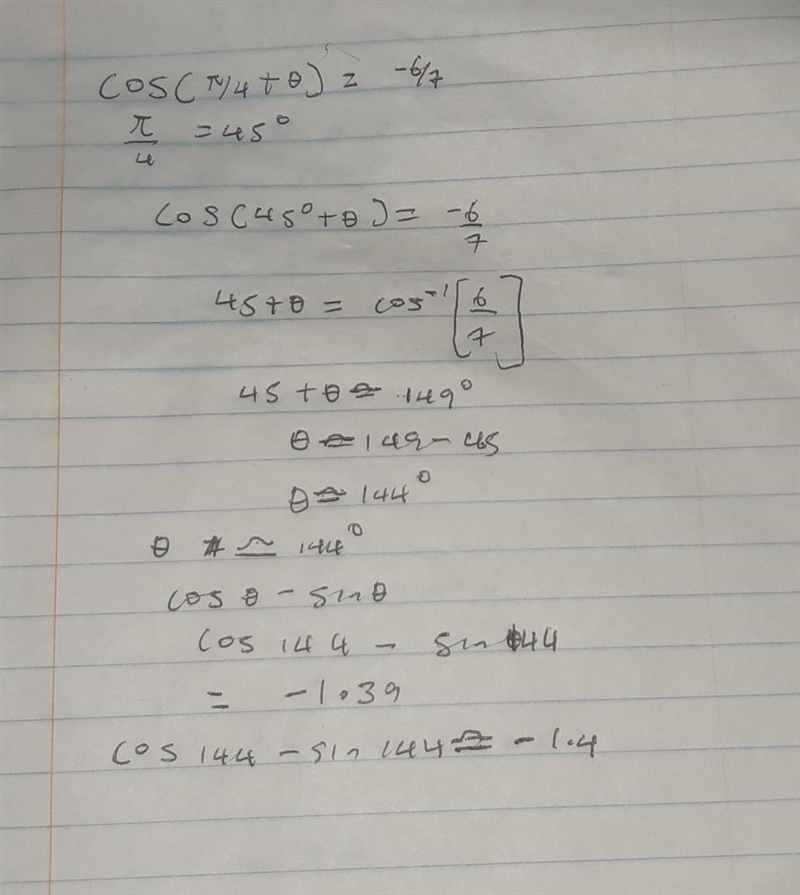 cos(π/4 + θ) = -6/7
π/4 = 45°
cos(45° + θ) = -6/7
45 + θ = cos⁻¹[6/7]
45 + θ ≃ 149°
θ ≃ 149 - 45
θ ≃ 144°
θ ≃ 144°
cos θ - sin θ
cos 144 - sin 144
= -1.39
cos 144 - sin 144 ≃ -1.4